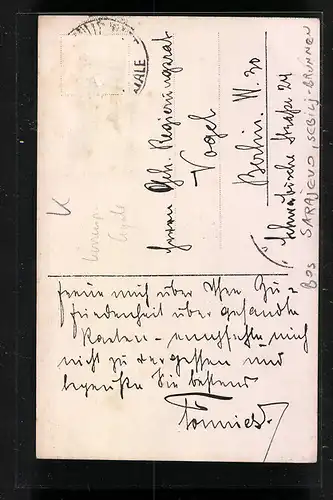 KALE
Herrn Geh. Regierungsrat
Vogel
Berlin. W. 30
Schwäbische Straße 24
BOS SARAJEVO, SEBILJ-BRUNNEN
K
freue mich über Ihre Zu-
friedenheit über gesandte
Karten – empfehle mich
nicht zu vergessen und
begrüße Sie bestens